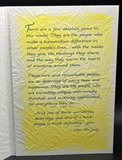 There are a few absolute gems in
this world. They are the people who
make a tremendous difference in
other people's lives... with the smiles
they give, the blessings they share,
and the way they warm the hearts
of everyone around them.
These rare and remarkable people
are so deserving of every hope and
happiness. They are the people who
are incredibly unique, enormously
thanked, and endlessly appreciated
for everything they do.
And one of those wonderful,
deserving, and